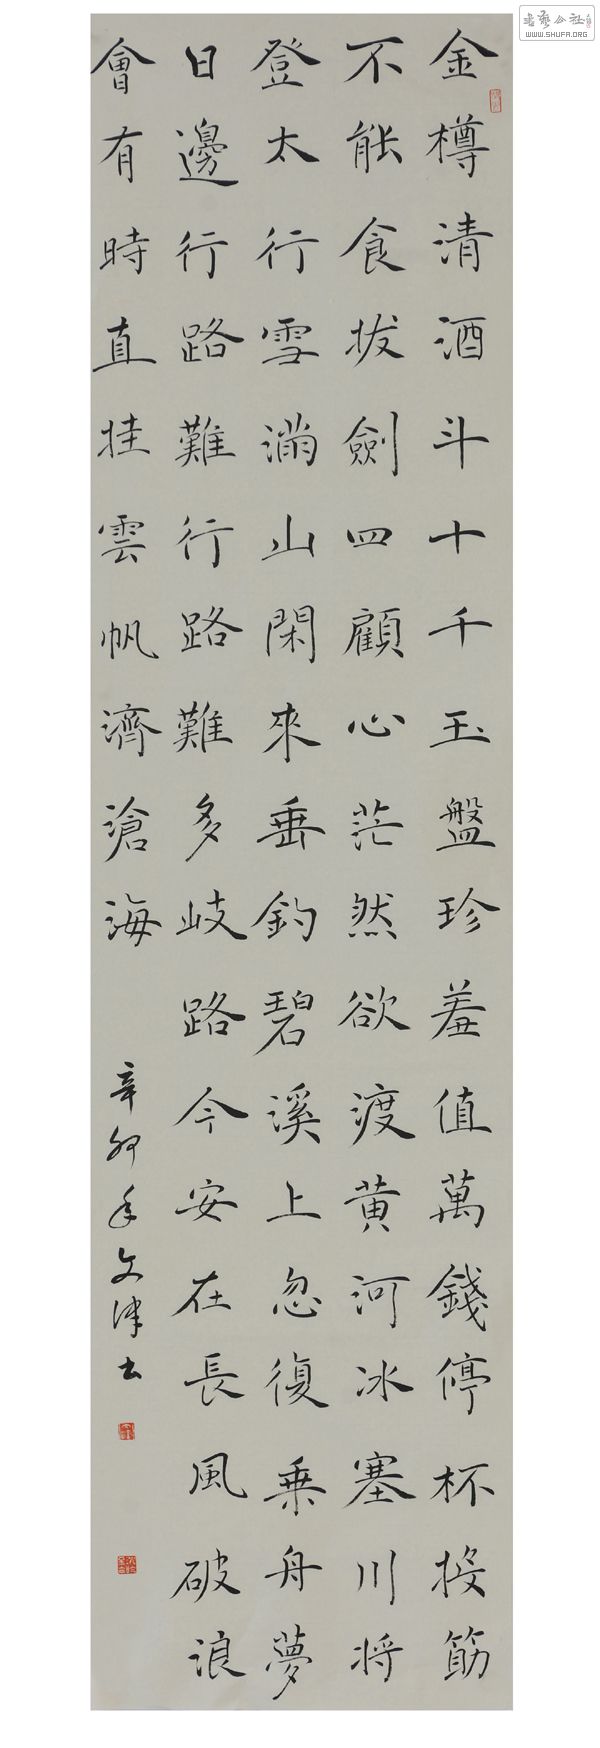 金樽清酒斗十千玉盤珍羞值萬錢停杯投筯
不能食拔劍四顧心茫然欲渡黃河冰塞川將
登太行雪滿山閑來垂釣碧溪上忽復乗舟夢
日邊行路難行路難多岐路今安在長風破浪
會有時直挂雲帆濟滄海
辛卯年文津書
書藝公社
WWW.SHUFA.ORG